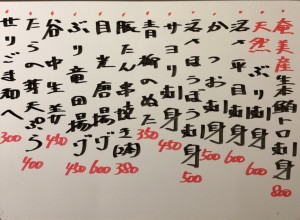 奄美産生本鮪トロ刺身 800
天然ぶり刺身 600
活〆平目刺身 600
かつお刺身 500
活〆ほうぼう刺身 500
サヨリ刺身 450
青柳のぬた 350
豚たん串焼 380
目光唐揚げ 600
ぶり竜田揚げ 450
谷中生姜 450
たらの芽天ぷら 400
せりごま和へ 300